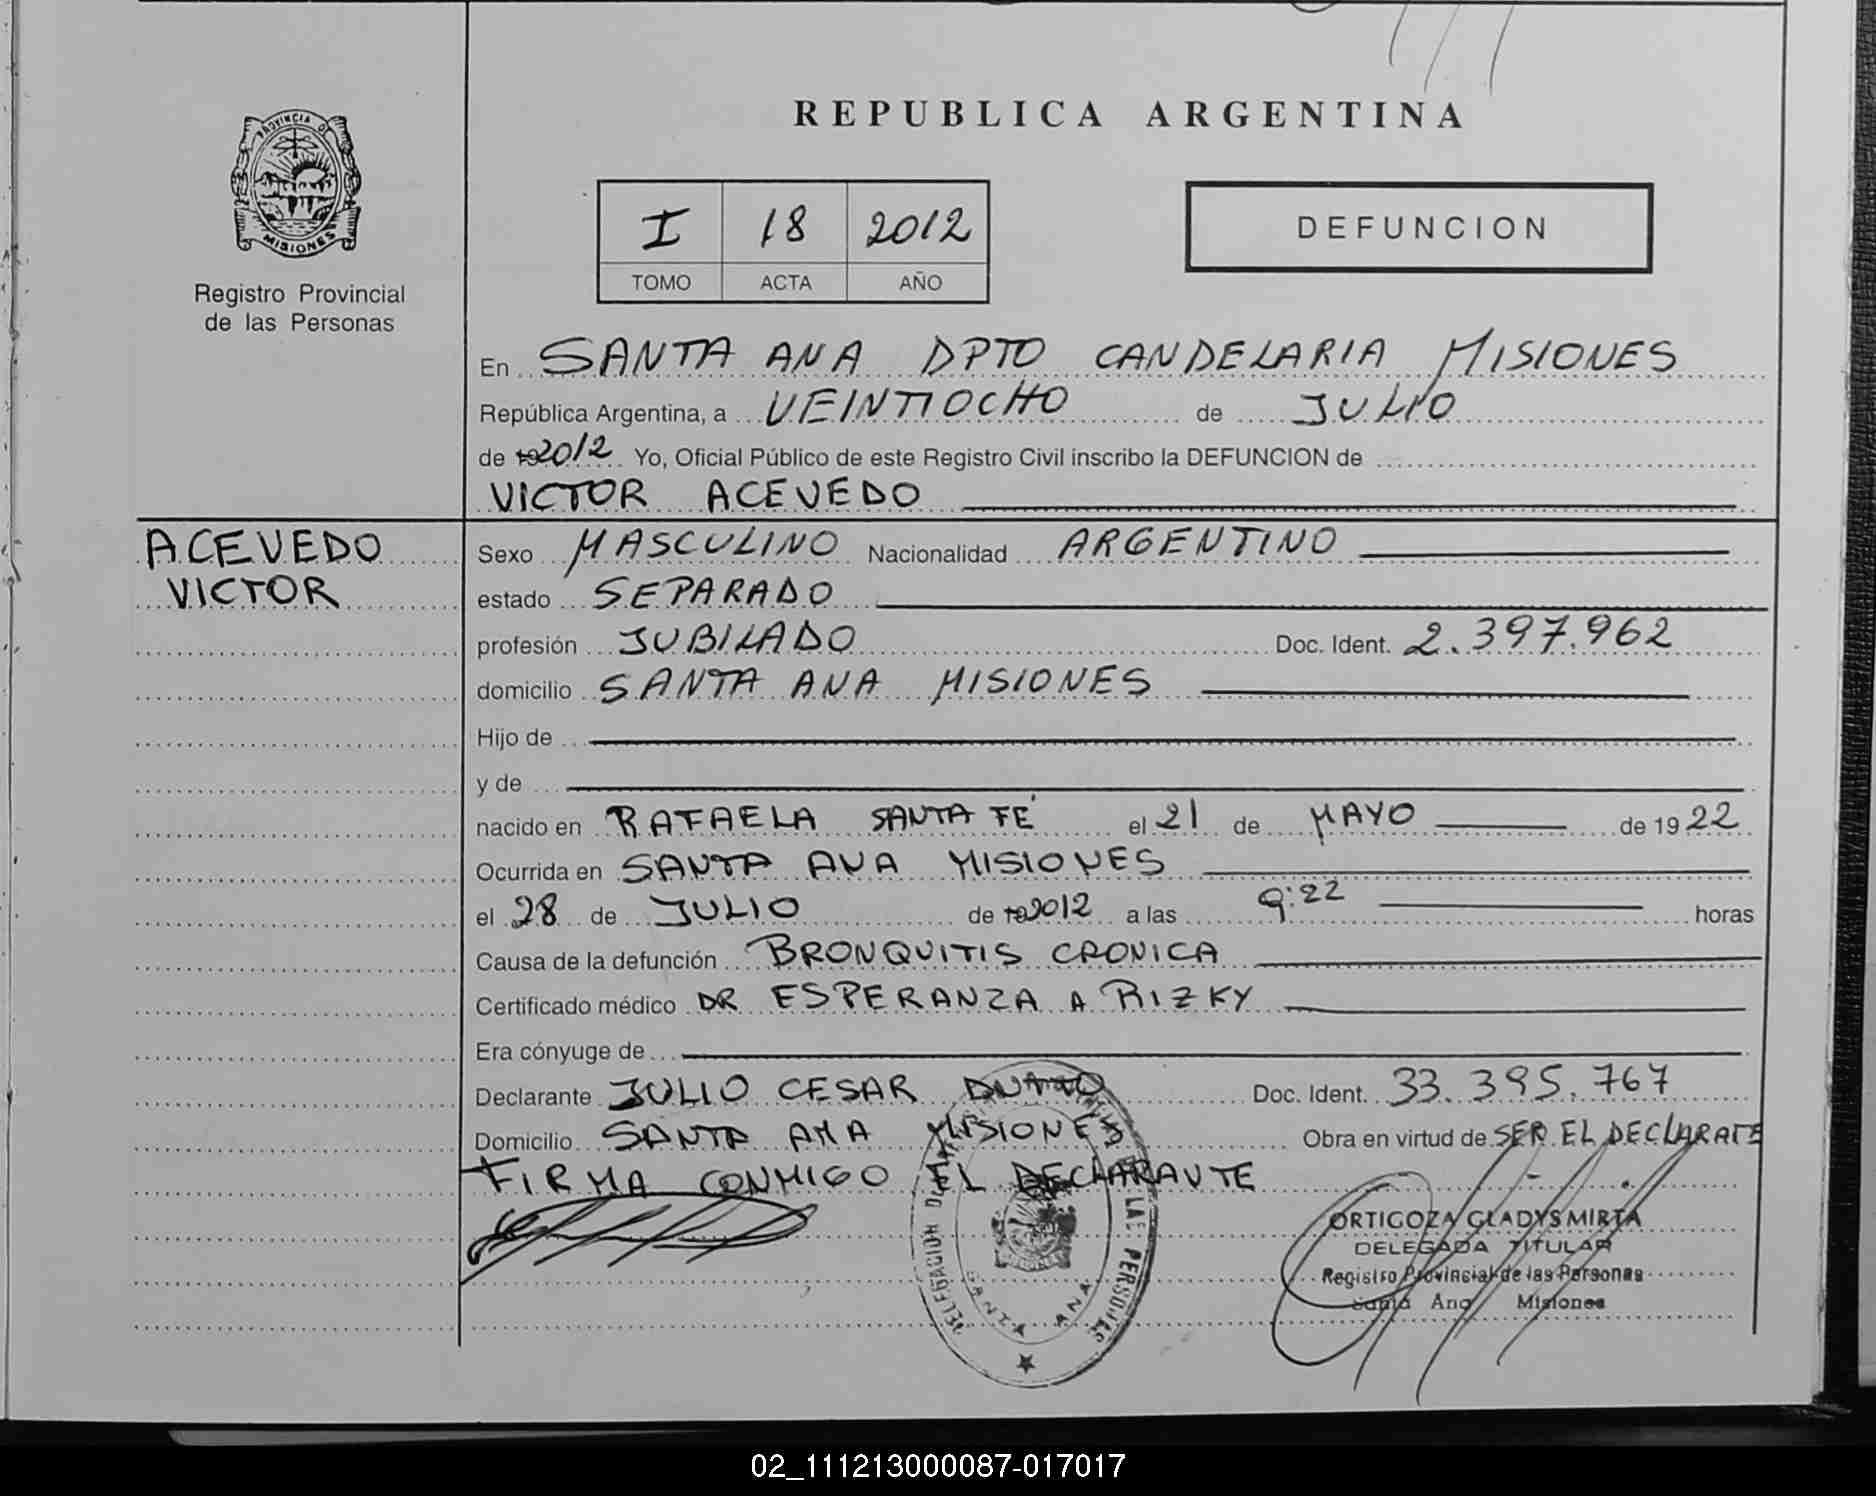 REPUBLICA ARGENTINA
PROVINCIA DE
MISIONES
Registro Provincial
de las Personas
I 18 2012
TOMO ACTA AÑO
DEFUNCION
En SANTA ANA DPTO CANDELARIA MISIONES
República Argentina, a VEINTIOCHO de JULIO
de 192012 Yo, Oficial Público de este Registro Civil inscribo la DEFUNCION de
VICTOR ACEVEDO
ACEVEDO
VICTOR
Sexo MASCULINO Nacionalidad ARGENTINO
estado SEPARADO
profesión JUBILADO Doc. Ident. 2.397.962
domicilio SANTA ANA MISIONES
Hijo de
y de
nacido en RAFAELA SANTA FÉ el 21 de MAYO de 1922
Ocurrida en SANTA ANA MISIONES
el 28 de JULIO de 192012 a las 9:22 horas
Causa de la defunción BRONQUITIS CRONICA
Certificado médico DR ESPERANZA A RIZKY
Era cónyuge de
Declarante JULIO CESAR Doc. Ident. 33.395.767
Domicilio SANTA ANA MISIONES Obra en virtud de SER EL DECLARATE
FIRMA CONMIGO EL DECLARANTE
DELEGACION DE LAS PERSONAS
SANTA ANA
ORTIGOZA GLADYS MIRTA
DELEGADA TITULAR
Registro Provincial de las Personas
Santa Ana Misiones
02_111213000087-017017